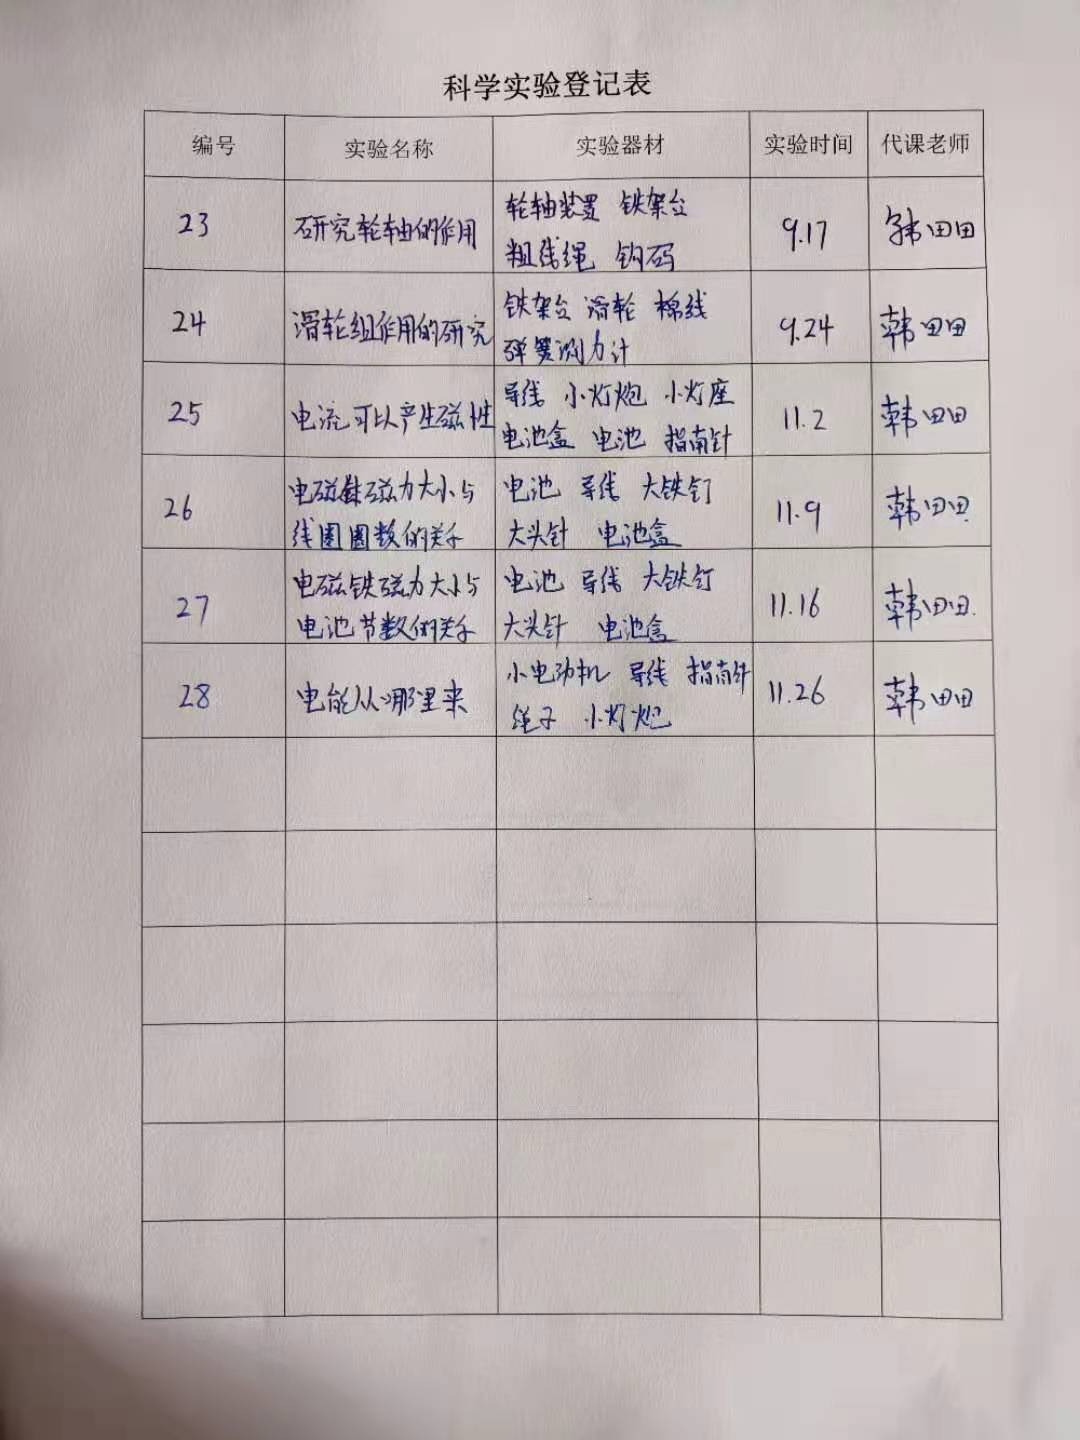 科学实验登记表
编号 实验名称 实验器材 实验时间 代课老师
23 研究轮轴的作用 轮轴装置 铁架台 9.17 韩田田
粗线绳 钩码
24 滑轮组作用的研究 铁架台 滑轮 棉线 9.24 韩田田
弹簧测力计
25 电流可以产生磁性 导线 小灯炮 小灯座 11.2 韩田田
电池盒 电池 指南针
26 电磁铁磁力大小与 电池 导线 大铁钉 11.9 韩田田
线圈圈数的关系 大头针 电池盒
27 电磁铁磁力大小与 电池 导线 大铁钉 11.16 韩田田
电池节数的关系 大头针 电池盒
28 电能从哪里来 小电动机 导线 指南针 11.26 韩田田
绳子 小灯炮